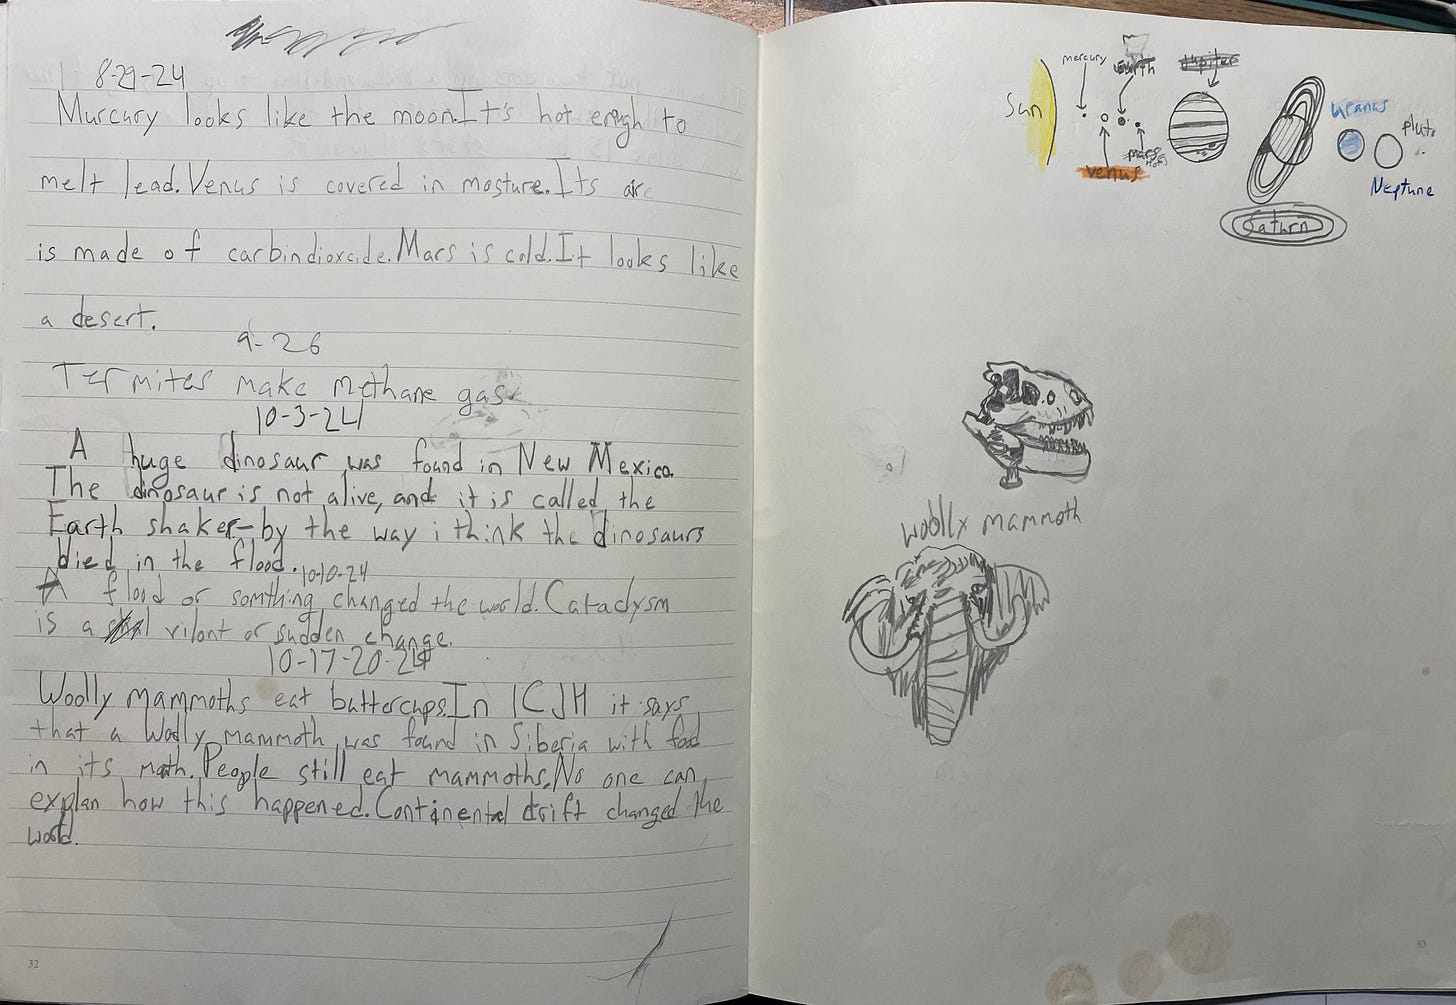 8-29-24
Murcary looks like the moon. It's hot enogh to
melt lead. Venus is covered in mosture. Its are
is made of carbindioxcide. Mars is cold. It looks like
a desert.
9-26
Termites make methane gas
10-3-24
A huge dinosaur was found in New Mexico.
The dinosaur is not alive, and it is called the
Earth shaker-by the way i think the dinosaurs
died in the flood.
10-10-24
A flood or somthing changed the world. Cataclysm
is a vilont or sudden change.
10-17-20-24
Woolly mammoths eat buttercups. In ICJH it says
that a Wolly mammoth was found in Siberia with food
in its moth. People still eat mammoths. No one can
explan how this happened. Continental drift changed the
world.
32
Sun
mercury
earth
Jupiter
venus
mars
Saturn
uranus
pluto
Neptune
woollx mammoth
33